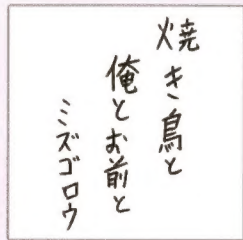 焼き鳥と
俺とお前と
ミズゴロウ